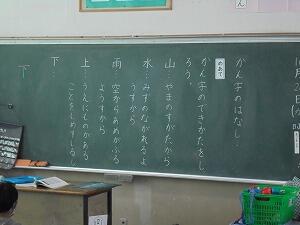 かん字のはなし
めあて
かん字のできかたをし
ろう。
山…やまのすがたから
水…みずのながれるよ
うすから
雨…空からあめがふる
ようすから
上…うえにものがある
ことをしめすしるし
下…
下